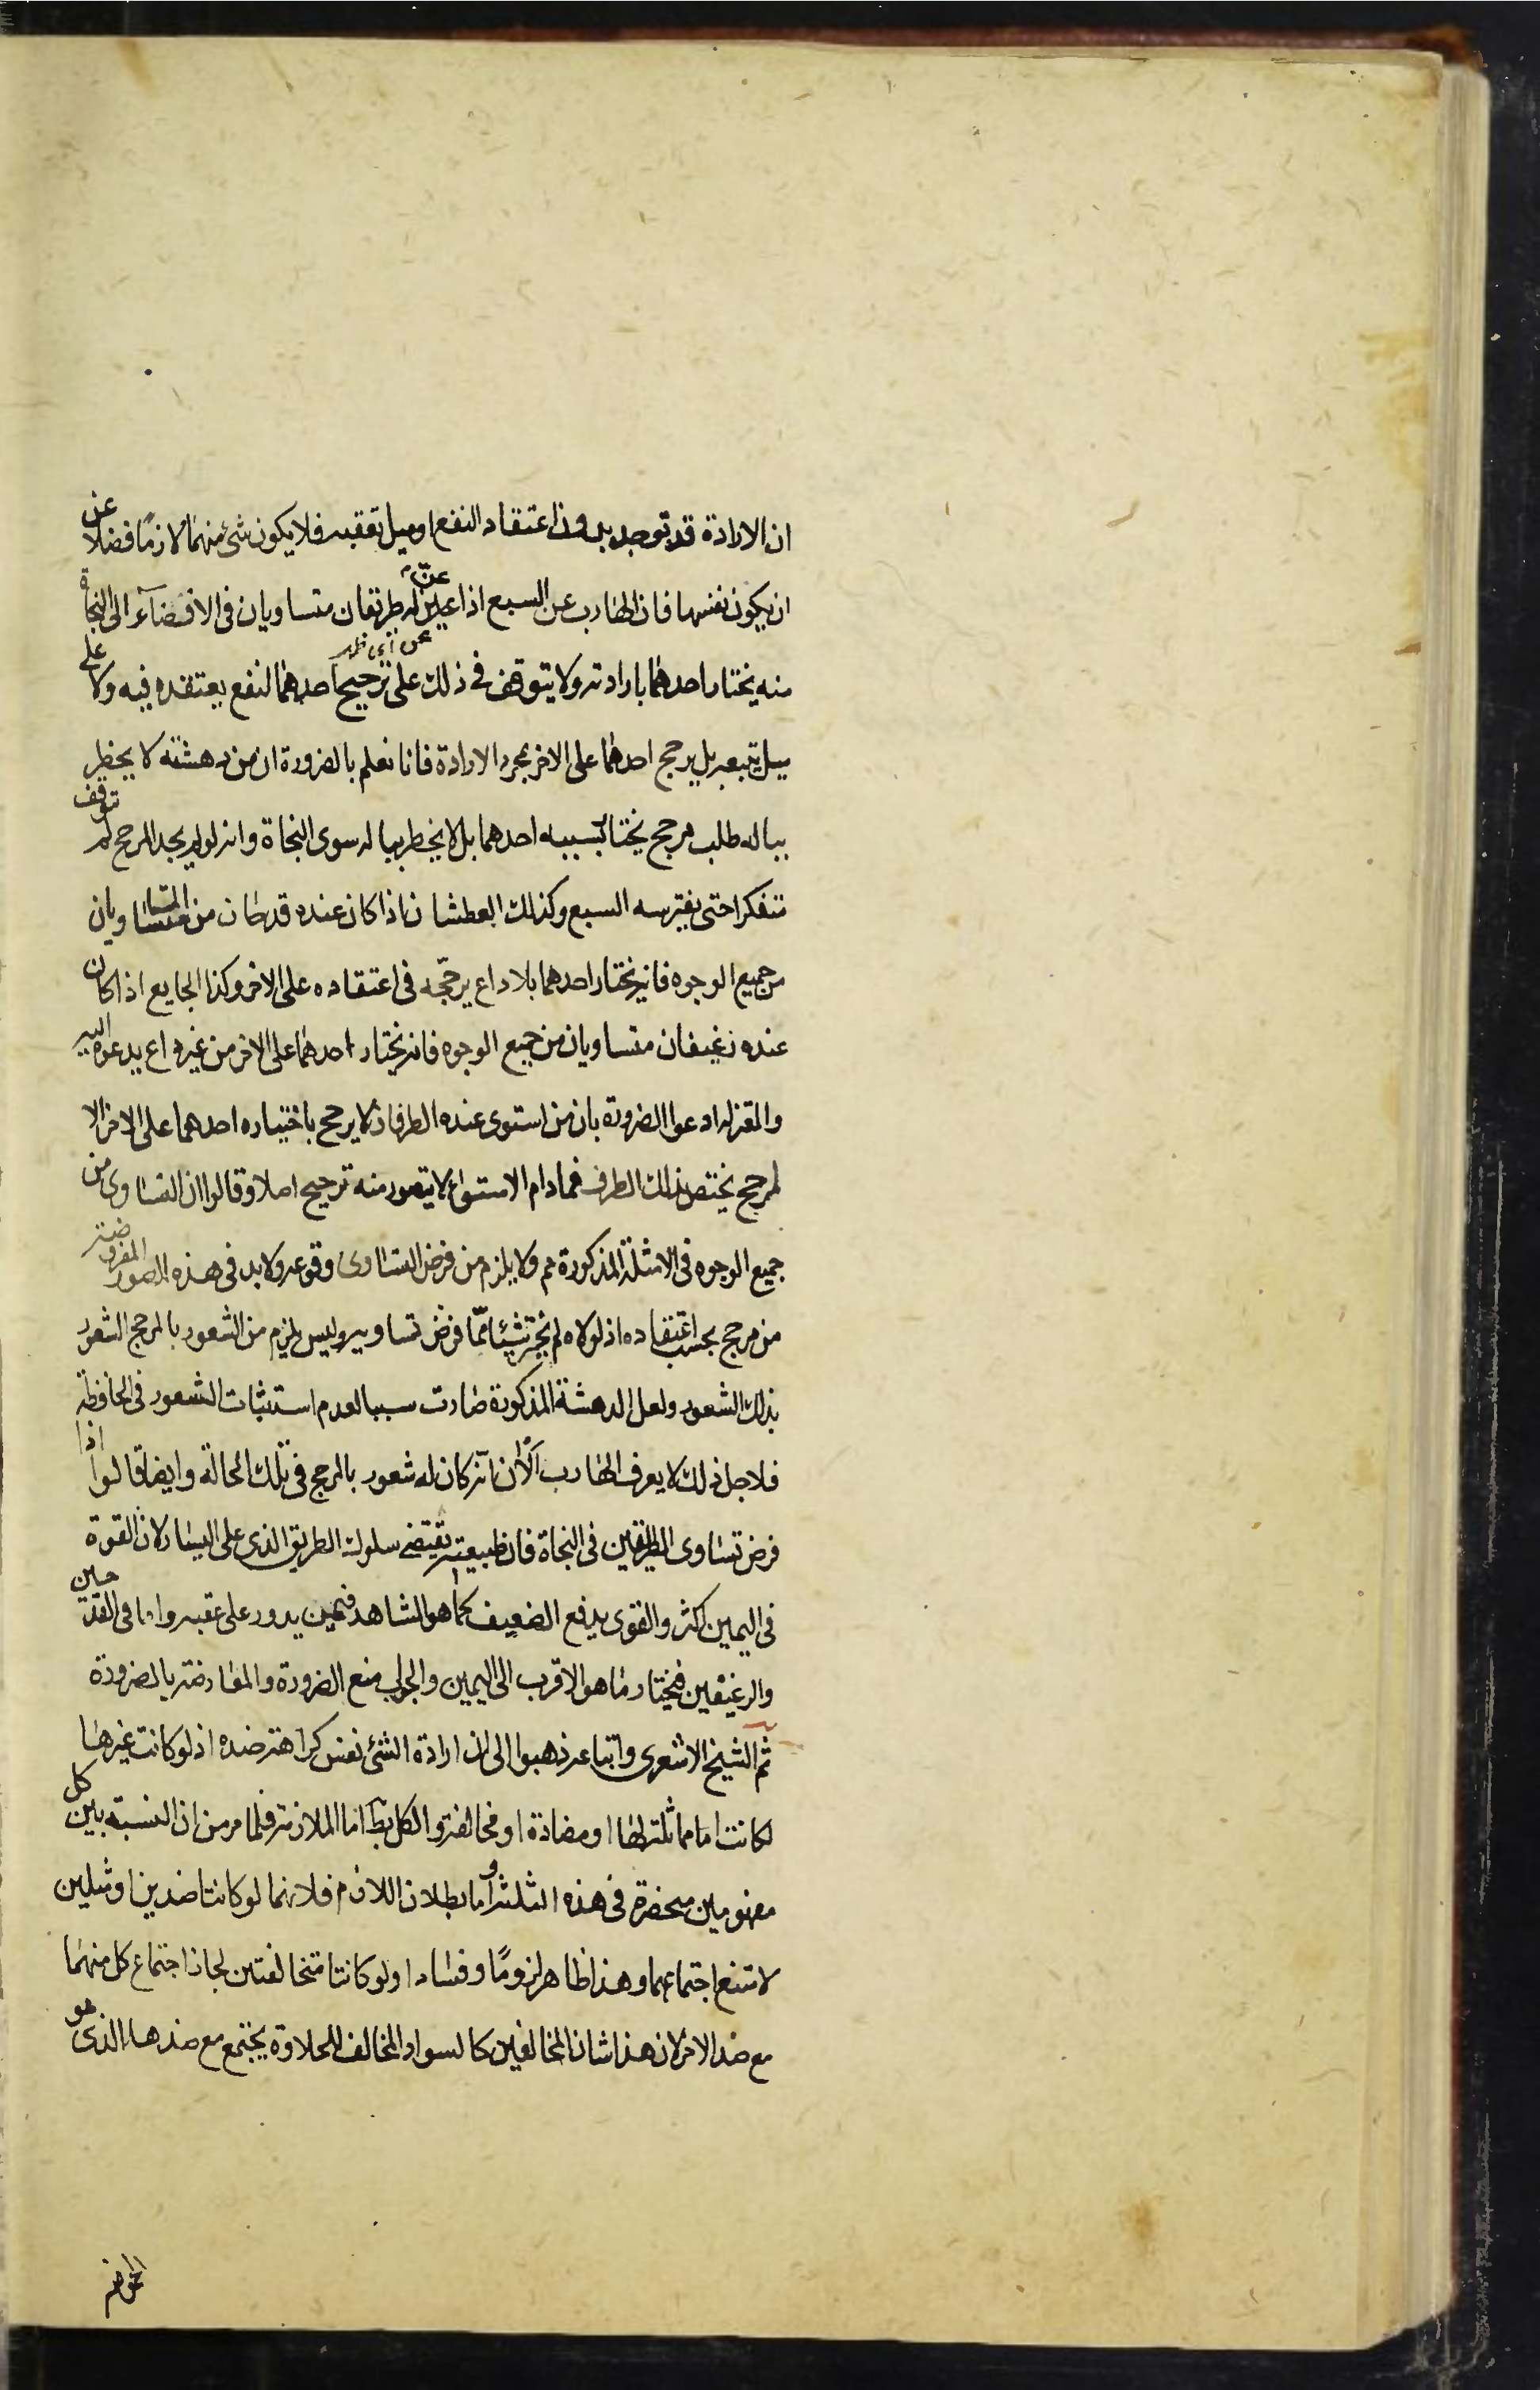 ان الارادة قد توجد بدون اعتقاد النفع او ميل تعقبه فلا يكون شئ منهما لازمًا فضلا عن
ان يكون نفسها فان الهارب عن السبع اذا عنّ له طريقان متساويان فى الافضآء الى النجاة
عن اى ظهر
منه يختار احدهما بارادته ولا يتوقف فى ذلك على ترجيح احدهما لنفع يعتقده فيه ولا على
ميل يتبعه بل يرجح احدهما على الاخر بمجرد الارادة فانا نعلم بالضرورة ان من دهشته لا يخطر
بباله طلب مرجح يختار بسببه احدهما بل لا يخطر بباله سوى النجاة وانه لو لم يجد المرجح لم توقف
متفكرا حتى يفترسه السبع وكذلك العطشان اذا كان عنده قدحان من المآء متساويان
من جميع الوجوه فانه يختار احدهما بلا داع يرجحه فى اعتقاده على الاخر وكذا الجايع اذا كان
عنده رغيفان متساويان من جميع الوجوه فانه يختار احدهما على الاخر من غير داع يدعوه اليه
والمعتزلة ادعوا الضرورة بان من استوى عنده الطرفان لا يرجح باختياره احدهما على الاخر الا
لمرجح يختص بذلك الطرف فما دام الاستواء لا يتصور منه ترجيح اصلا وقالوا ان التساوى من
جميع الوجوه فى الامثلة المذكورة مم ولا يلزم من فرض التساوى وقوعه ولا بد فى هذه الصور المفروضة
من مرجح بحسب اعتقاده اذ لولاه لم يختر شيئا مما فرض تساويه وليس يلزم من الشعور بالمرجح الشعور
بذلك الشعور ولعل الدهشة المذكورة صارت سببا لعدم استثبات الشعور فى الحافظة
فلاجل ذلك لا يعرف الهارب الآن انه كان له شعور بالمرجح فى تلك الحالة وايضا قالوا اذا
فرض تساوى الطريقين فى النجاة فان طبيعته يقتضى سلوك الطريق الذى على اليسار لان القوة
فى اليمين اكثر والقوى يدفع الضعيف كما هو المشاهد فيمن يدور على عقبه واما فى القدحين
والرغيفين فيختار ما هو الاقرب الى اليمين والجواب منع الضرورة والمعارضة بالضرورة
ثم الشيخ الاشعرى واتباعه ذهبوا الى ان ارادة الشئ نفس كراهة ضده اذ لو كانت غيرها
لكانت اما مماثلة لها او مضادة او مخالفة والكل بط اما الملازمة فلما مر من ان النسبة بين كل
مفهومين منحصرة فى هذه الثلثة واما بطلان اللازم فلانهما لو كانتا ضدين او مثلين
لامتنع اجتماعهما وهذا ظاهر لزومًا وفسادا ولو كانتا متخالفتين لجاز اجتماع كل منهما
مع ضد الاخر لان هذا شان المخالفين كالسواد المخالف للحلاوة يجتمع مع ضدها الذى هو